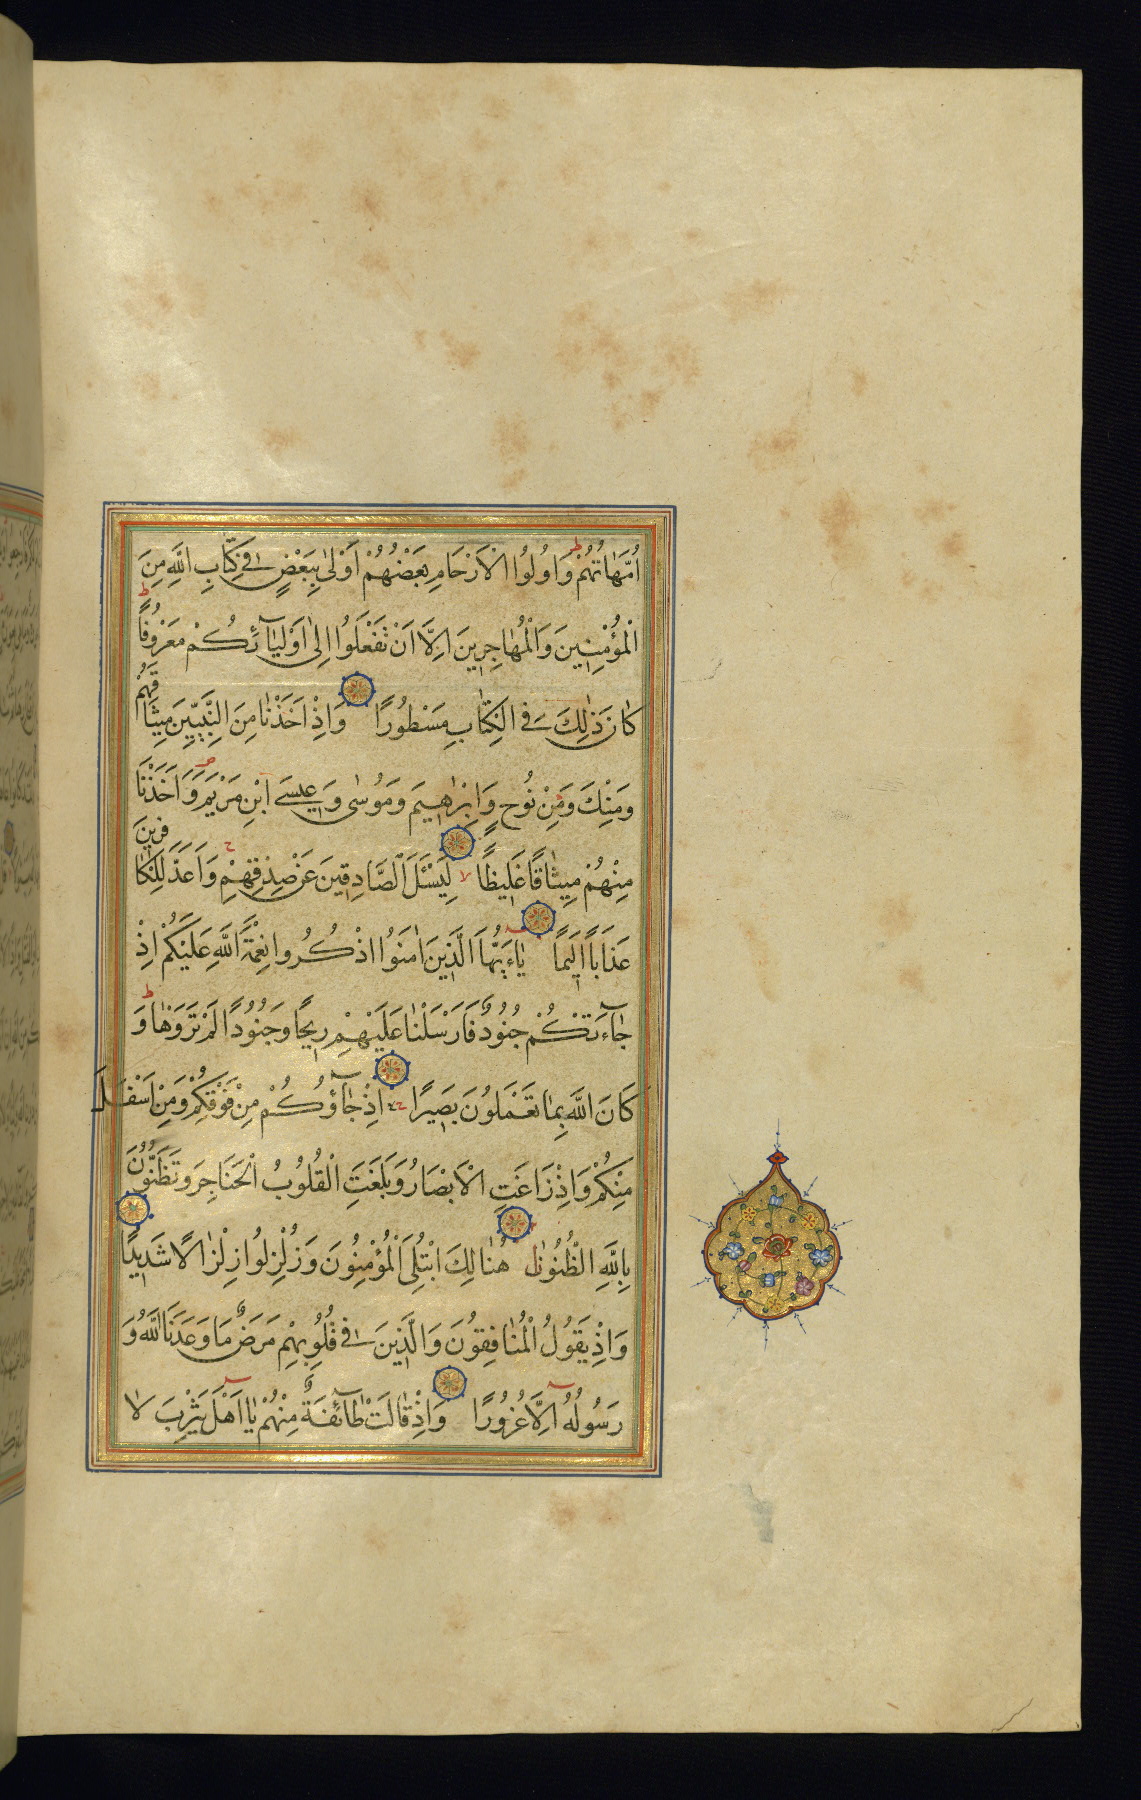 اُمَّهَاتُهُمْ وَاُولُوا الْاَرْحَامِ بَعْضُهُمْ اَوْلٰى بِبَعْضٍ فِى كِتَابِ اللَّهِ مِنَ
الْمُؤْمِنِينَ وَالْمُهَاجِرِينَ اِلَّا اَنْ تَفْعَلُوا اِلٰى اَوْلِيَآئِكُمْ مَعْرُوفًا
كَانَ ذٰلِكَ فِى الْكِتَابِ مَسْطُورًا وَاِذْ اَخَذْنَا مِنَ النَّبِيِّينَ مِيثَاقَهُمْ
وَمِنْكَ وَمِنْ نُوحٍ وَاِبْرٰهِيمَ وَمُوسٰى وَعِيسَى ابْنِ مَرْيَمَ وَاَخَذْنَا
مِنْهُمْ مِيثَاقًا غَلِيظًا لِيَسْئَلَ الصَّادِقِينَ عَنْ صِدْقِهِمْ وَاَعَدَّ لِلْكَافِرِينَ
عَذَابًا اَلِيمًا يَاءَيُّهَا الَّذِينَ اٰمَنُوا اذْكُرُوا نِعْمَةَ اللَّهِ عَلَيْكُمْ اِذْ
جَآءَتْكُمْ جُنُودٌ فَاَرْسَلْنَا عَلَيْهِمْ رِيحًا وَجُنُودًا لَمْ تَرَوْهَا وَ
كَانَ اللَّهُ بِمَا تَعْمَلُونَ بَصِيرًا اِذْ جَآؤُكُمْ مِنْ فَوْقِكُمْ وَمِنْ اَسْفَلَ
مِنْكُمْ وَاِذْ زَاغَتِ الْاَبْصَارُ وَبَلَغَتِ الْقُلُوبُ الْحَنَاجِرَ وَتَظُنُّونَ
بِاللَّهِ الظُّنُونَا هُنَالِكَ ابْتُلِىَ الْمُؤْمِنُونَ وَزُلْزِلُوا زِلْزَالًا شَدِيدًا
وَاِذْ يَقُولُ الْمُنَافِقُونَ وَالَّذِينَ فِى قُلُوبِهِمْ مَرَضٌ مَا وَعَدَنَا اللَّهُ وَ
رَسُولُهُ اِلَّا غُرُورًا وَاِذْ قَالَتْ طَآئِفَةٌ مِنْهُمْ يَا اَهْلَ يَثْرِبَ لَا